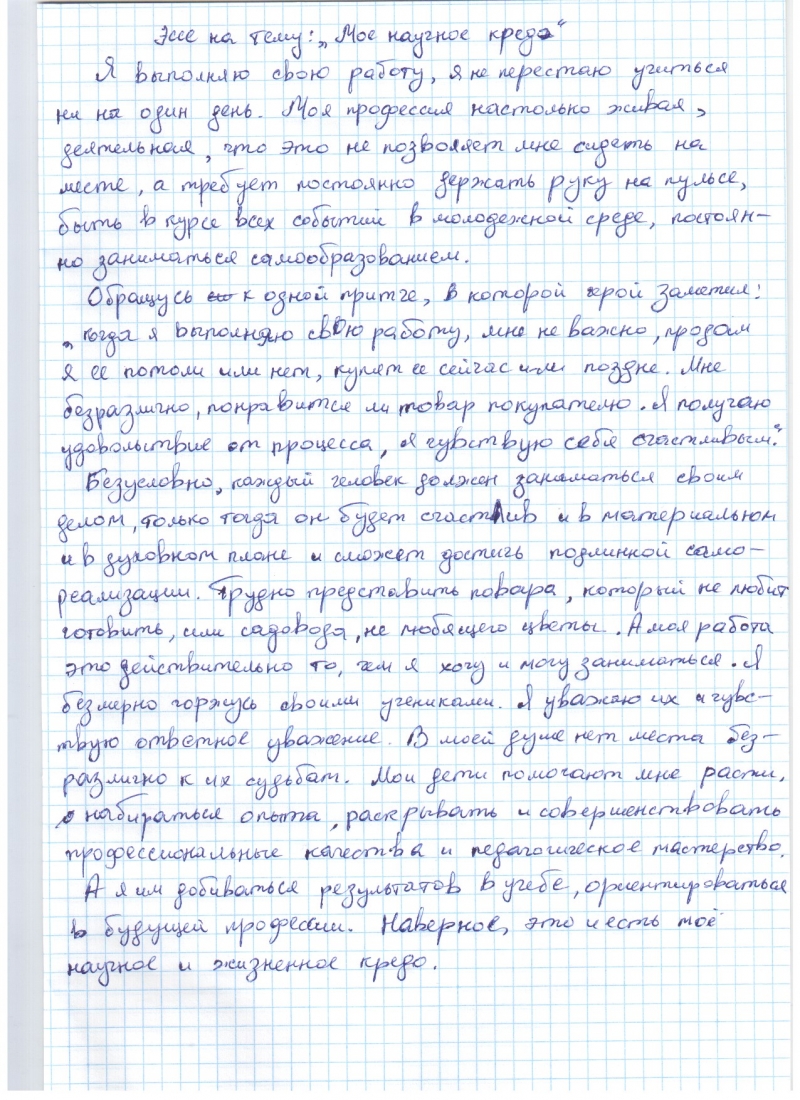 Эссе на тему: „Мое научное кредо“
Я выполняю свою работу, я не перестаю учиться
ни на один день. Моя профессия настолько живая,
деятельная, что это не позволяет мне сидеть на
месте, а требует постоянно держать руку на пульсе,
быть в курсе всех событий в молодежной среде, постоян-
но заниматься самообразованием.
Обращусь к одной притче, в которой герой заметил:
„когда я выполняю свою работу, мне не важно, продам
я ее потом или нет, купят ее сейчас или поздне. Мне
безразлично, понравится ли товар покупателю. Я получаю
удовольствие от процесса, я чувствую себя счастливым.“
Безусловно, каждый человек должен заниматься своим
делом, только тогда он будет счастлив и в материальном
и в духовном плане и сможет достичь подлинной само-
реализации. Трудно представить повара, который не любит
готовить, или садовода, не любящего цветы. А моя работа
это действительно то, чем я хочу и могу заниматься. Я
безмерно горжусь своими учениками. Я уважаю их и чувс-
твую ответное уважение. В моей душе нет места без-
различию к их судьбам. Мои дети помогают мне расти,
набираться опыта, раскрывать и совершенствовать
профессиональные качества и педагогическое мастерство.
А я им добиваться результатов в учебе, ориентироваться
в будущей профессии. Наверное, это и есть моё
научное и жизненное кредо.